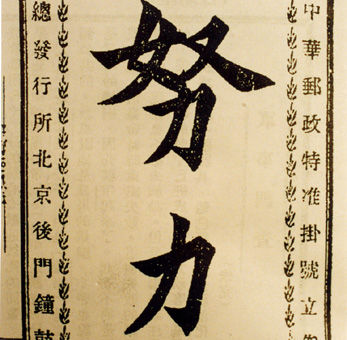 中華郵政特准掛號立
努力
總發行所北京後門鐘鼓